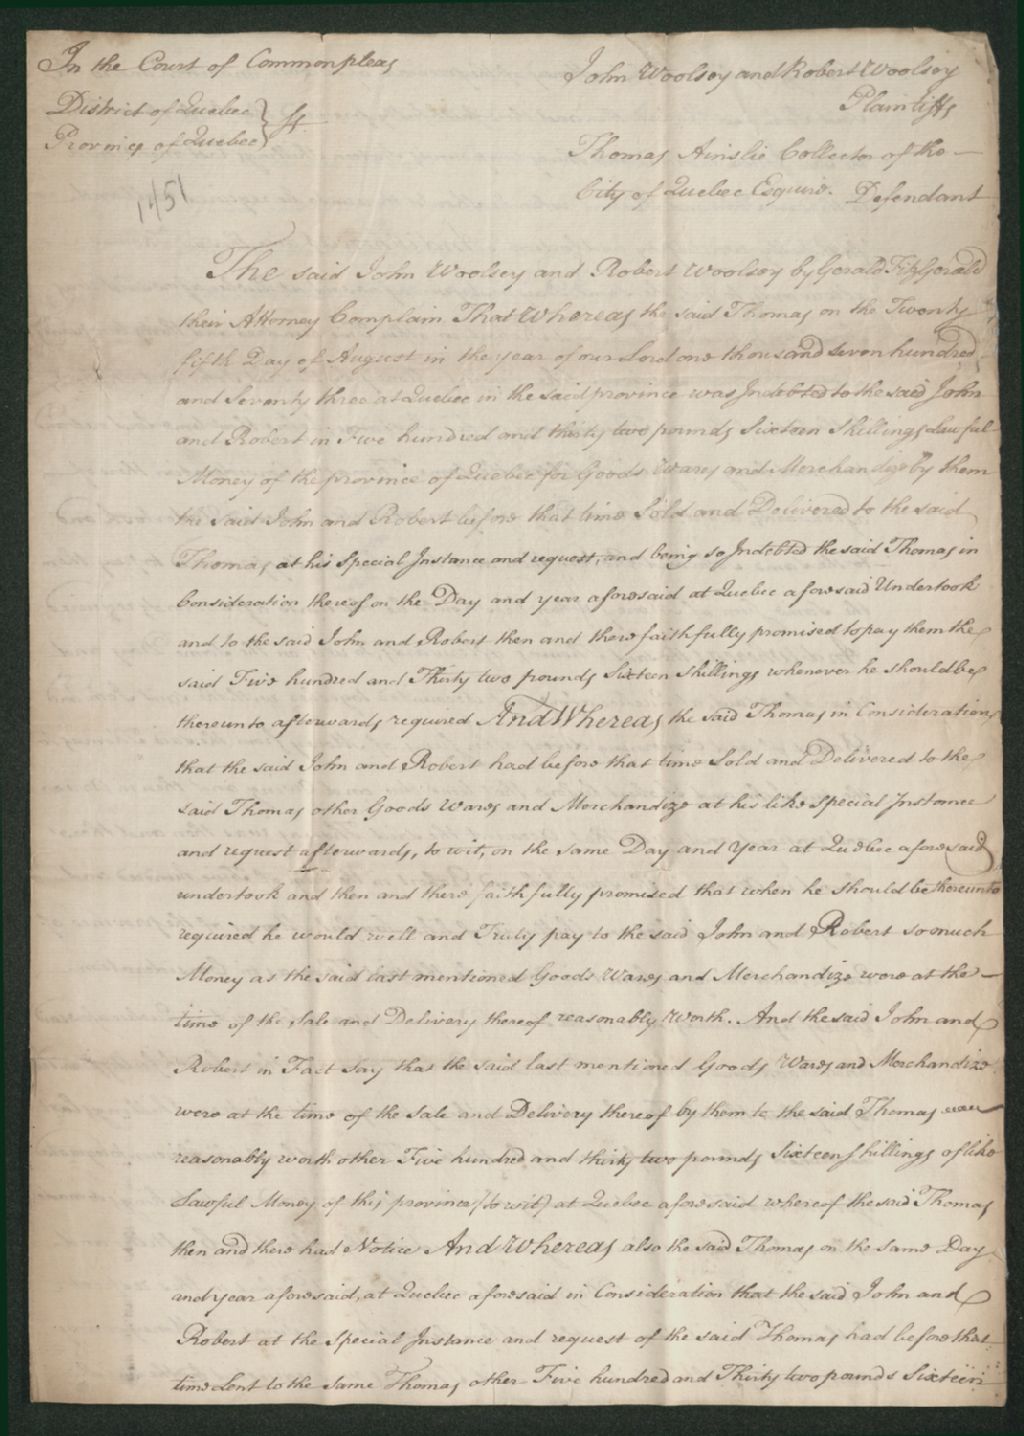 In the Court of Commonpleas
District of Quebec } ss
Province of Quebec }
1451
John Woolsey and Robert Woolsey
Plaintiffs
Thomas Ainslie Collector of the
City of Quebec Esquire. Defendant
The said John Woolsey and Robert Woolsey by Gerald FitzGerald
their Attorney Complain That Whereas the said Thomas on the Twenty
fifth Day of August in the year of our Lord one thousand seven hundred
and Seventy three at Quebec in the said province was Indebted to the said John
and Robert in Five hundred and thirty two pounds Sixteen Shillings Lawful
Money of the province of Quebec for Goods Wares and Merchandize by them
the said John and Robert before that time Sold and Delivered to the said
Thomas at his Special Instance and request, and being so Indebted the said Thomas in
Consideration thereof on the Day and year aforesaid at Quebec aforesaid Undertook
and to the said John and Robert then and there faithfully promised to pay them the
said Five hundred and Thirty two pounds Sixteen Shillings whenever he should be
thereunto afterwards required And Whereas the said Thomas in Consideration
that the said John and Robert had before that time Sold and Delivered to the
said Thomas other Goods Wares and Merchandize at his like Special Instance
and request afterwards, to wit, on the same Day and Year at Quebec aforesaid
undertook and then and there faithfully promised that when he should be thereunto
required he would well and Truly pay to the said John and Robert so much
Money as the said last mentioned Goods Wares and Merchandize were at the
time of the Sale and Delivery thereof reasonably Worth. And the said John and
Robert in Fact Say that the said last mentioned Goods Wares and Merchandize
were at the time of the Sale and Delivery thereof by them to the said Thomas
reasonably worth other Five hundred and thirty two pounds Sixteen Shillings of like
Lawful Money of this province (to wit) at Quebec aforesaid whereof the said Thomas
then and there had Notice And Whereas also the said Thomas on the same Day
and year aforesaid, at Quebec aforesaid in Consideration that the said John and
Robert at the Special Instance and request of the said Thomas had before that
time Lent to the same Thomas other Five hundred and Thirty two pounds Sixteen